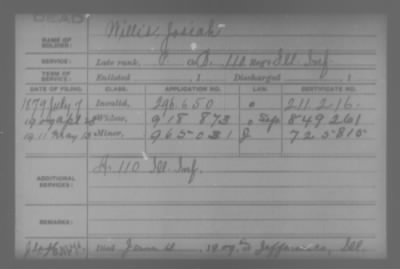 DEAD
NAME OF SOLDIER: Willis, Josiah
SERVICE: Late rank, P. Co. D, 110 Reg't Ill. Inf.
TERM OF SERVICE: Enlisted , 1 Discharged , 1
DATE OF FILING. CLASS. APPLICATION NO. LAW. CERTIFICATE NO.
1879 July 7 Invalid, 296.650 211.216.
1909 Apl 28 Widow, 918.873 849261
1911 May 13 Minor, 965031 725815
ADDITIONAL SERVICES: A. 110 Ill. Inf.
REMARKS:
Died 1909, at Ill.